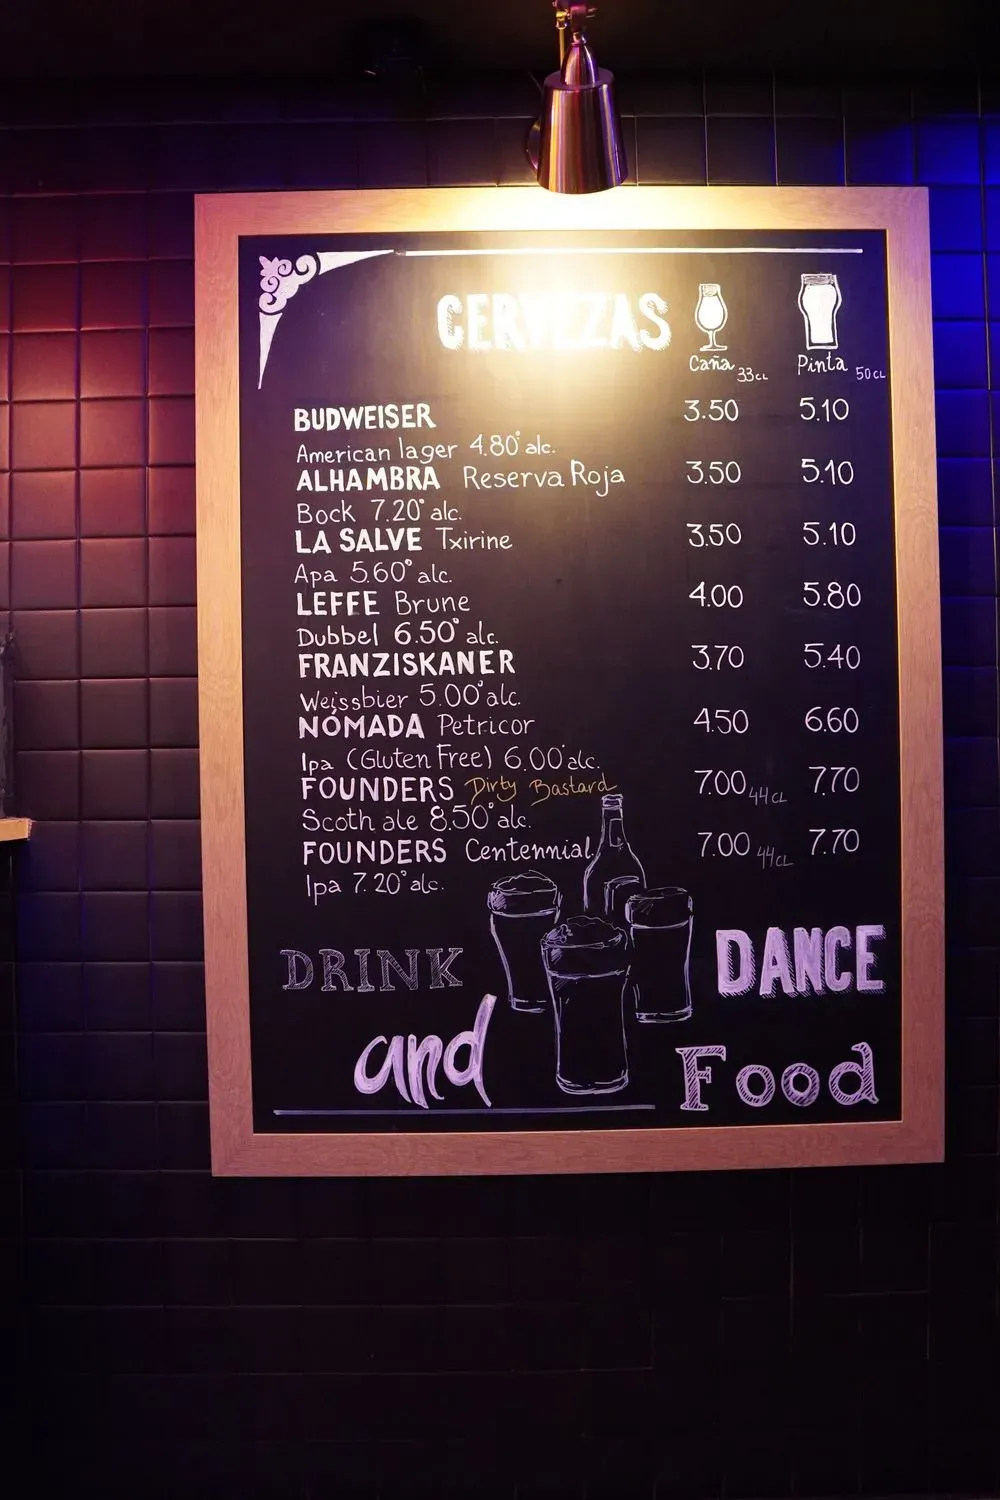 CERVEZAS
Caña 33cL Pinta 50cL
BUDWEISER 3.50 5.10
American lager 4.80° alc.
ALHAMBRA Reserva Roja 3.50 5.10
Bock 7.20° alc.
LA SALVE Txirine 3.50 5.10
Apa 5.60° alc.
LEFFE Brune 4.00 5.80
Dubbel 6.50° alc.
FRANZISKANER 3.70 5.40
Weissbier 5.00° alc.
NÓMADA Petricor 4.50 6.60
Ipa (Gluten Free) 6.00° alc.
FOUNDERS Dirty Bastard 7.00 44cL 7.70
Scoth ale 8.50° alc.
FOUNDERS Centennial 7.00 44cL 7.70
Ipa 7.20° alc.
DRINK DANCE
and Food